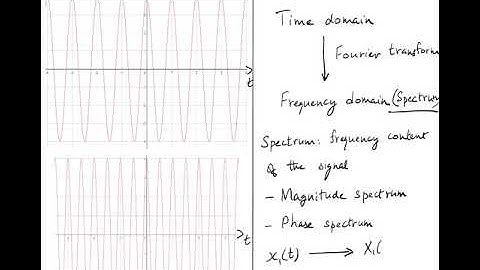 Time domain
Fourier transform
Frequency domain (Spectrum
Spectrum: frequency content
of the signal
- Magnitude spectrum
- Phase spectrum
x₁(t) → X₁(
t
t